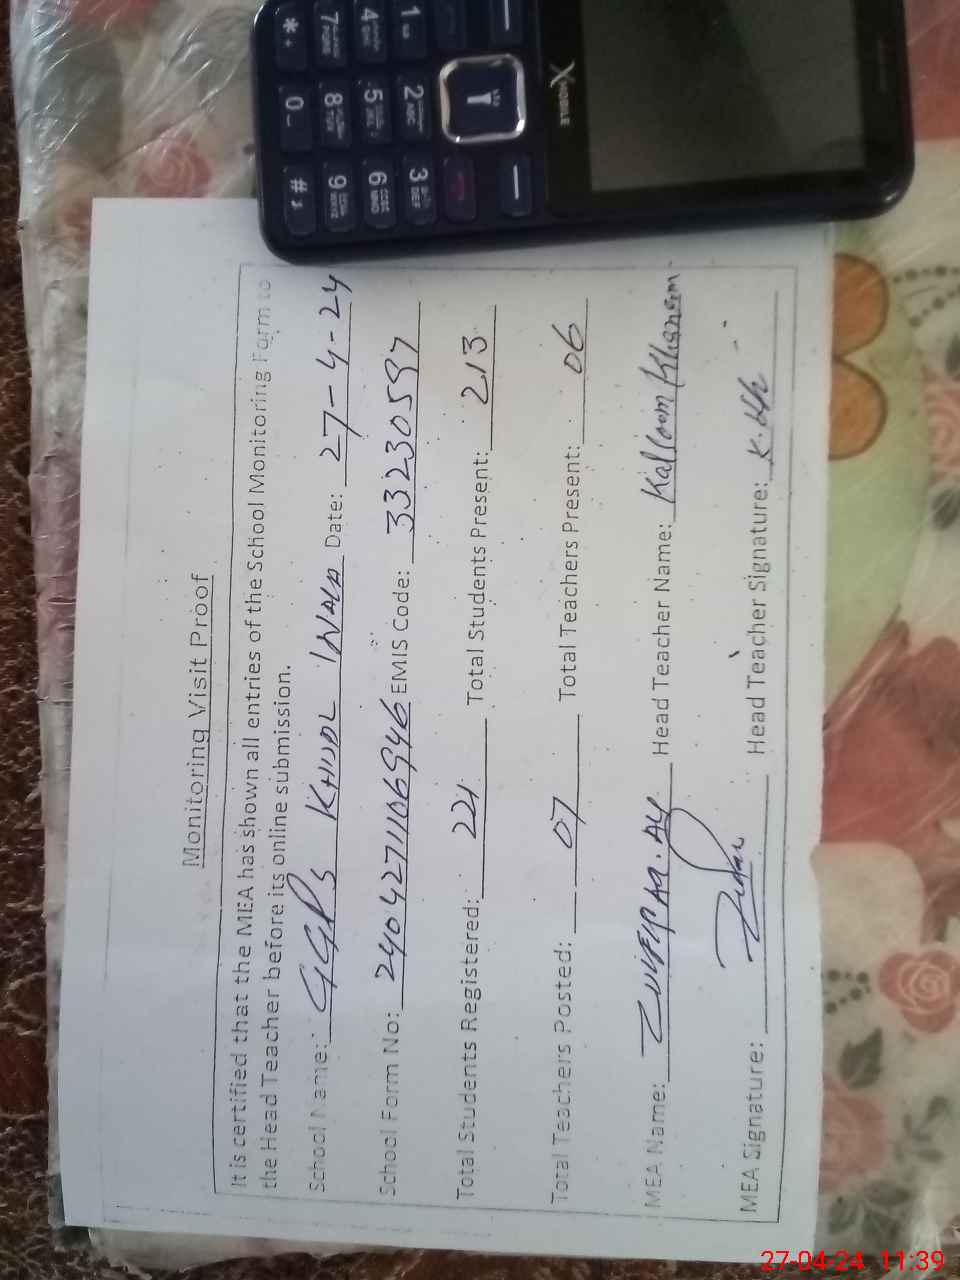 Monitoring Visit Proof
It is certified that the MEA has shown all entries of the School Monitoring Form to
the Head Teacher before its online submission.
School Name: GGPS KHIDL INALA Date: 27-4-24
School Form No: 2404271106946 EMIS Code: 33230597
Total Students Registered: 221 Total Students Present: 213
Total Teachers Posted: 07 Total Teachers Present: 06
MEA Name: Head Teacher Name: Kalloom Khanam
MEA Signature: Head Teacher Signature: K.
X MOBILE
1 2 ABC 3 DEF
4 5 JKL 6 MNO
7 PQRS 8 TUV 9 WXYZ
* 0 #
27-04-24 11:39